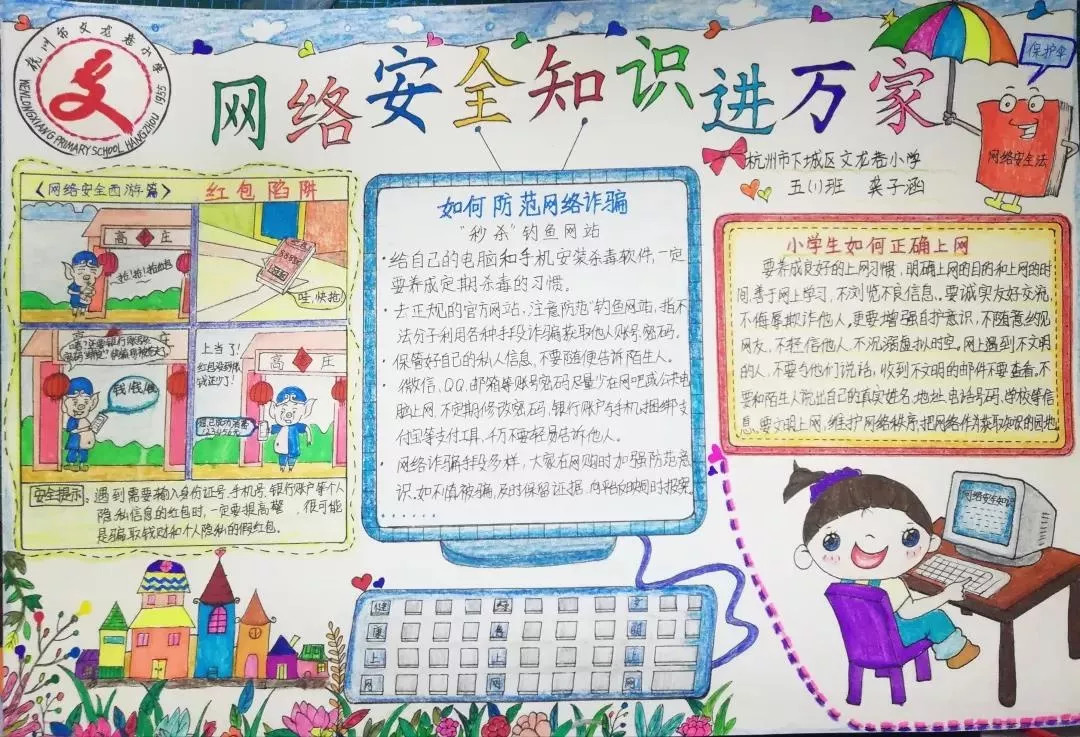 杭州市文龙巷小学
WENLONGXIANG PRIMARY SCHOOL HANGZHOU 1955
网络安全知识进万家
保护伞
网络安全法
杭州市下城区文龙巷小学
五(1)班 龚子涵
《网络安全西游篇》
红包陷阱
高庄
抢!抢!抢红包
哇,快抢
钱!钱!钱
上当了!
红包没到依
钱还少了!
高庄
123456元
安全提示:遇到需要输入身份证号、手机号、银行账户等个人
隐私信息的红包时,一定要提高警 ,很可能
是骗取钱财和个人隐私的假红包。
如何防范网络诈骗
“秒杀”钓鱼网站
·给自己的电脑和手机安装杀毒软件,一定
要养成定期杀毒的习惯。
·去正规的官方网站,注意防范“钓鱼网站,指不
法分子利用各种手段诈骗获取他人账号、密码。
·保管好自己的私人信息,不要随便告诉陌生人。
·微信、QQ、邮箱等账号密码尽量少在网吧或公共电
脑上网,不定期修改密码,银行账户与手机捆绑支
付宝等支付工具,千万不要轻易告诉他人。
·网络诈骗手段多样,大家在网购时加强防范意
识。如不慎被骗,及时保留证据,向平台反映同时报案。
......
小学生如何正确上网
要养成良好的上网习惯,明确上网的目的和上网的时
间,善于网上学习,不浏览不良信息。要诚实友好交流,
不侮辱欺诈他人。更要增强自护意识,不随意约见
网友,不轻信他人、不沉溺虚拟时空。网上遇到不文明
的人,不要与他们说话,收到不文明的邮件不要查看,不
要和陌生人说出自己的真实姓名、地址、电话号码、学校等信
息。要文明上网,维护网络秩序,把网络作为获取知识的园地
网络安全知识
健 绿 文
康 色 明
上 上 上
网 网 网